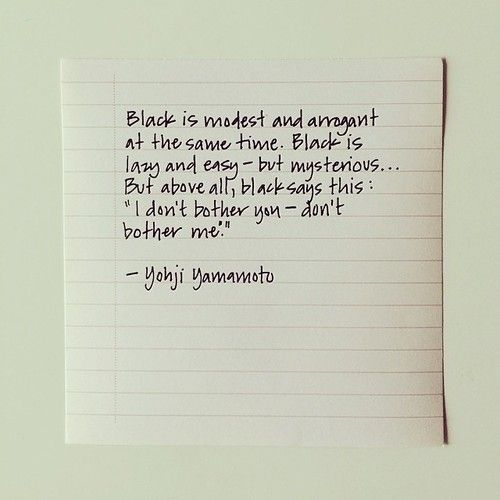 Black is modest and arrogant
at the same time. Black is
lazy and easy – but mysterious...
But above all, black says this:
"I don't bother you – don't
bother me."
– Yohji Yamamoto